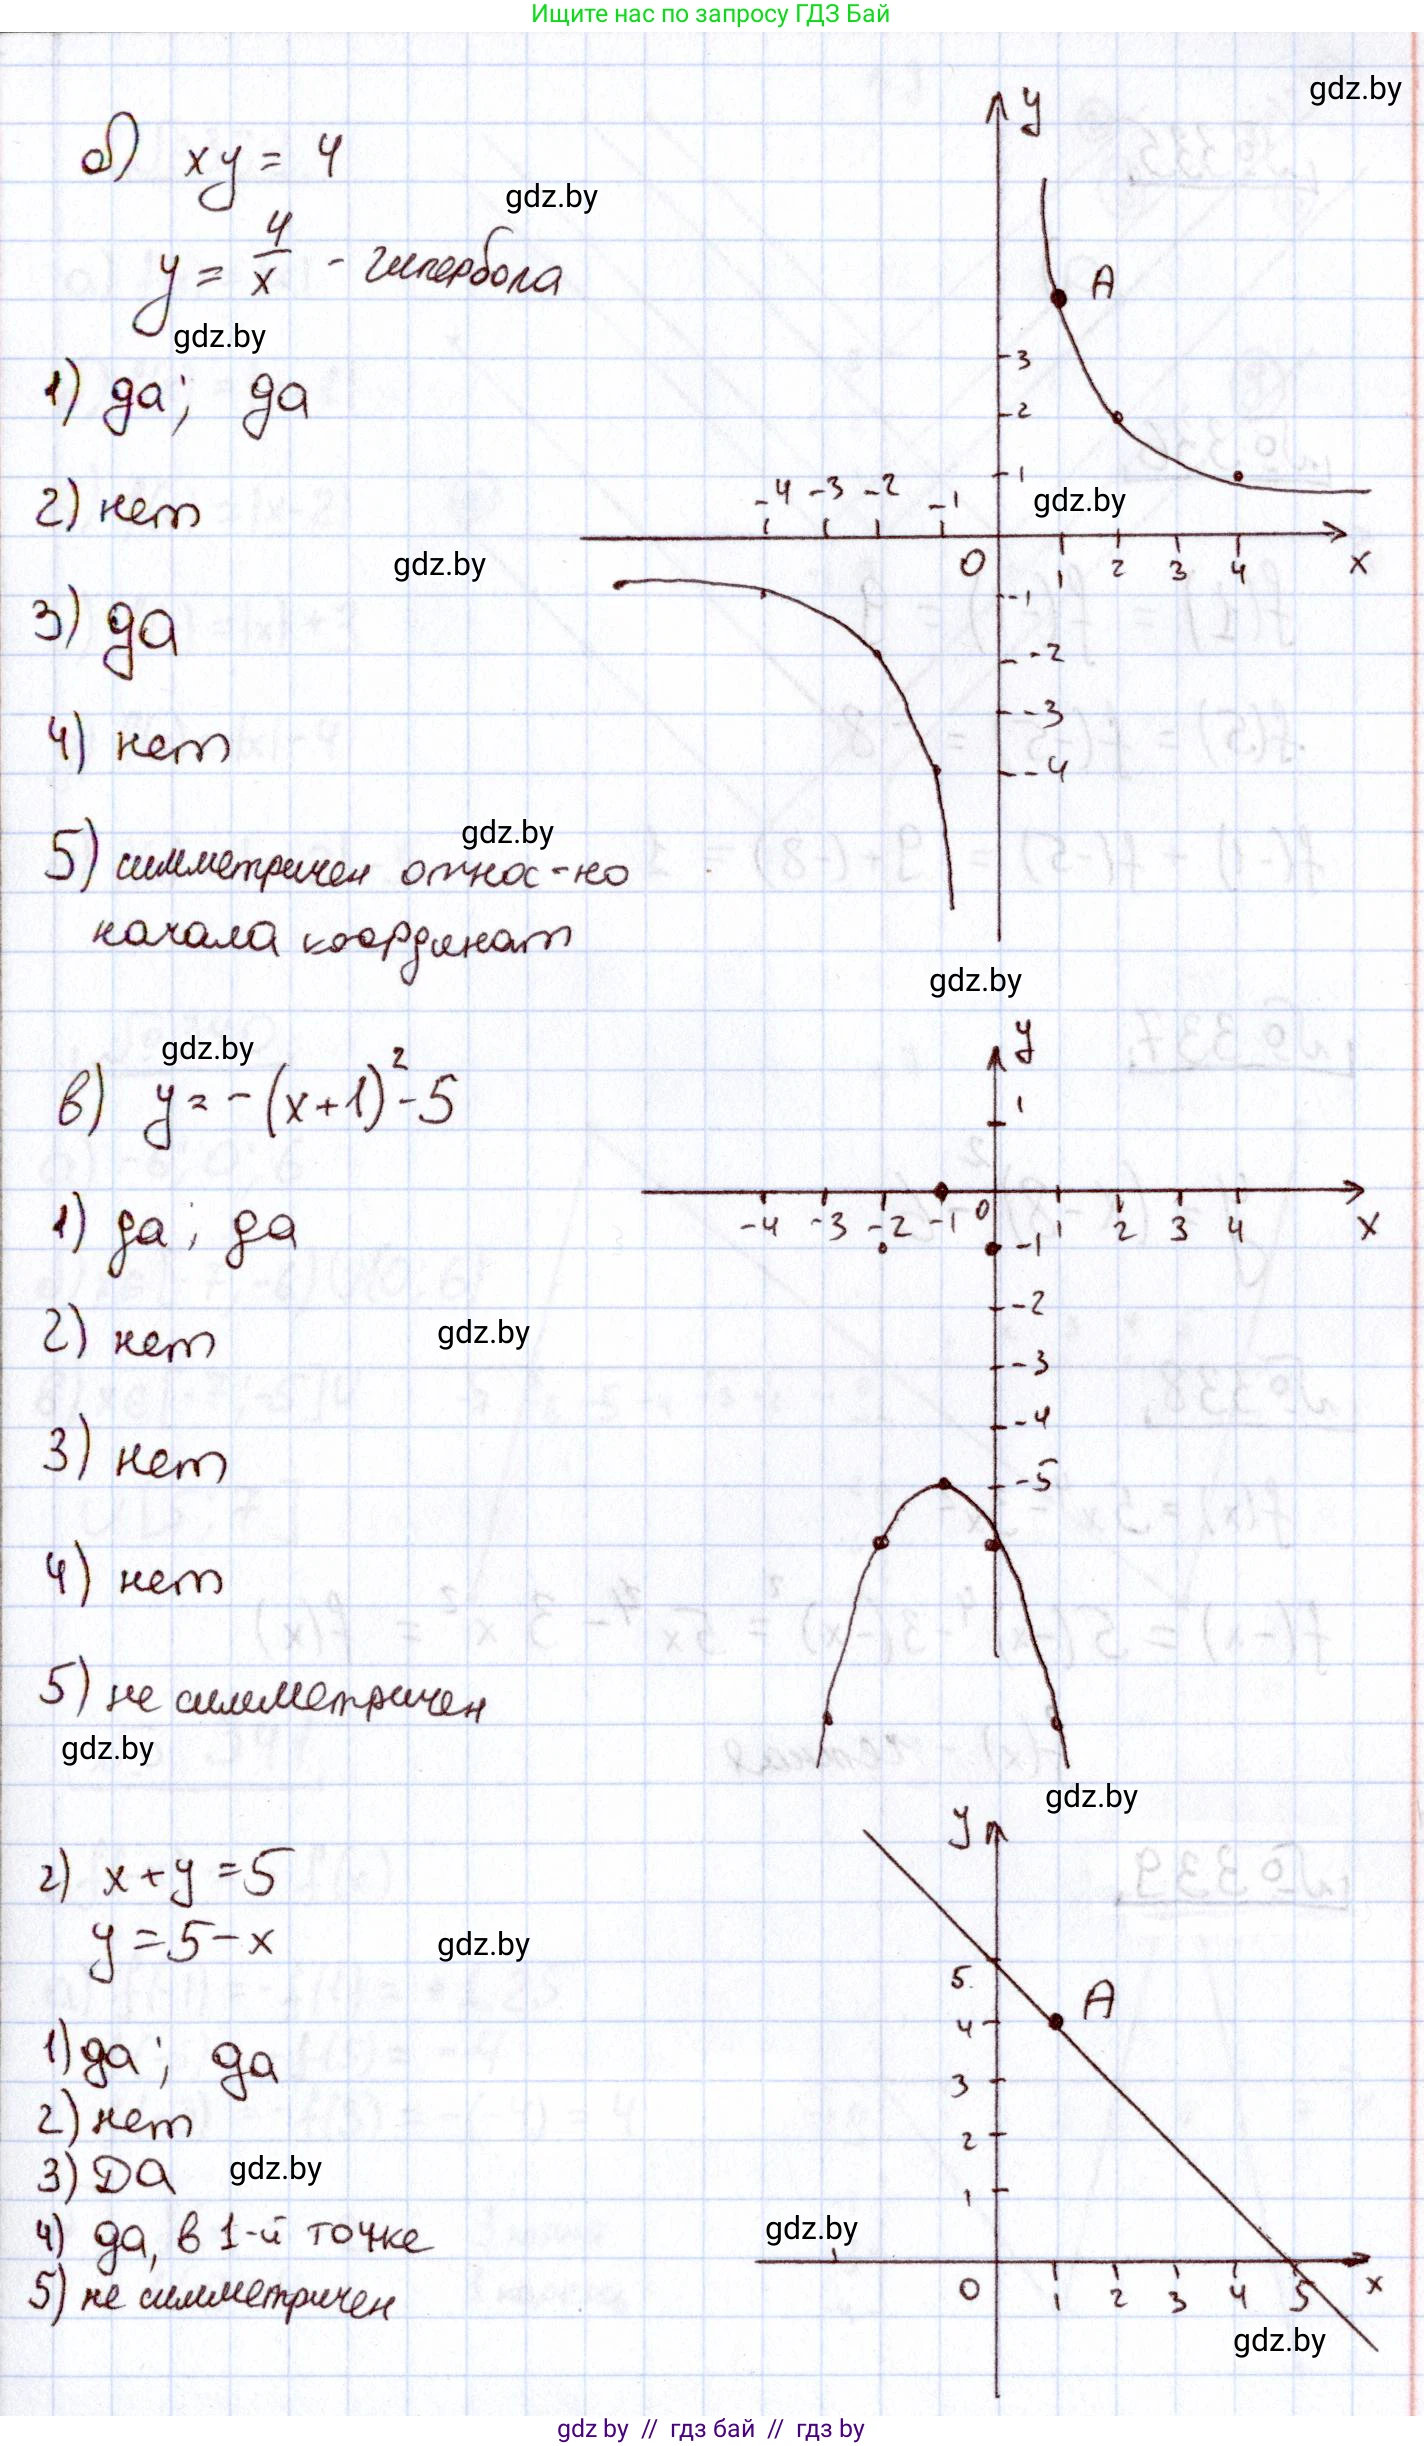 Ищите нас по запросу ГДЗ Бай
gdz.by
б) xy = 4
gdz.by
y = 4/x - гипербола
gdz.by
1) да; да
2) нет
gdz.by
3) да
4) нет
gdz.by
5) симметричен относ-но
начала координат
y
A
3
2
1
gdz.by
-4 -3 -2 -1
0 1 2 3 4 x
-1
-2
-3
-4
gdz.by
gdz.by
в) y = -(x+1)² - 5
1) да; да
2) нет
gdz.by
3) нет
4) нет
5) не симметричен
gdz.by
y
1
-4 -3 -2 -1 0 1 2 3 4 x
-1
-2
-3
-4
-5
gdz.by
г) x + y = 5
y = 5 - x
gdz.by
1) да; да
2) нет
3) ДА
gdz.by
4) да, в 1-й точке
5) не симметричен
y
5
A
4
3
2
1
gdz.by
0 1 2 3 4 5 x
gdz.by
gdz by // гдз бай // гдз by